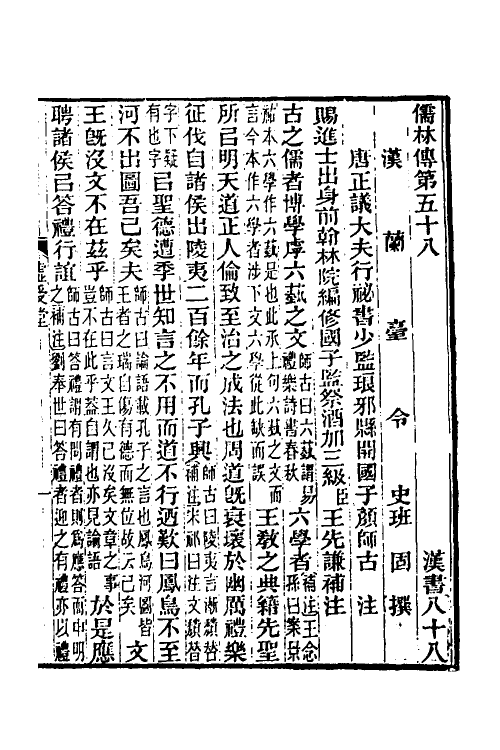 儒林傳第五十八 漢書八十八
漢蘭臺令史班固撰
唐正議大夫行祕書少監琅邪縣開國子顏師古注
賜進士出身前翰林院編修國子監祭酒加三級臣王先謙補注
古之儒者博學虖六藝之文師古曰六藝謂易禮樂詩書春秋六學者補注王念孫曰案景
祐本六學作六藝是也此承上句六藝之文而言今本作六學者涉下文六學從此缺而誤王教之典籍先聖
所㠯明天道正人倫致至治之成法也周道既衰壞於幽厲禮樂
征伐自諸侯出陵夷二百餘年而孔子興師古曰陵夷言漸積替補注宋祁曰注文積替
字下疑有也字㠯聖德遭季世知言之不用而道不行迺歎曰鳳鳥不至
河不出圖吾已矣夫師古曰論語載孔子之言也鳳鳥河圖皆王者之瑞自傷有德而無位故云已矣文
王既沒文不在茲乎師古曰言文王久已沒矣文章之事豈不在此乎蓋自謂也亦見論語於是應
聘諸侯㠯答禮行誼師古曰答禮謂有問禮者則爲應答而申明之補注劉奉世曰答禮者迎之有禮亦以禮
虛受堂